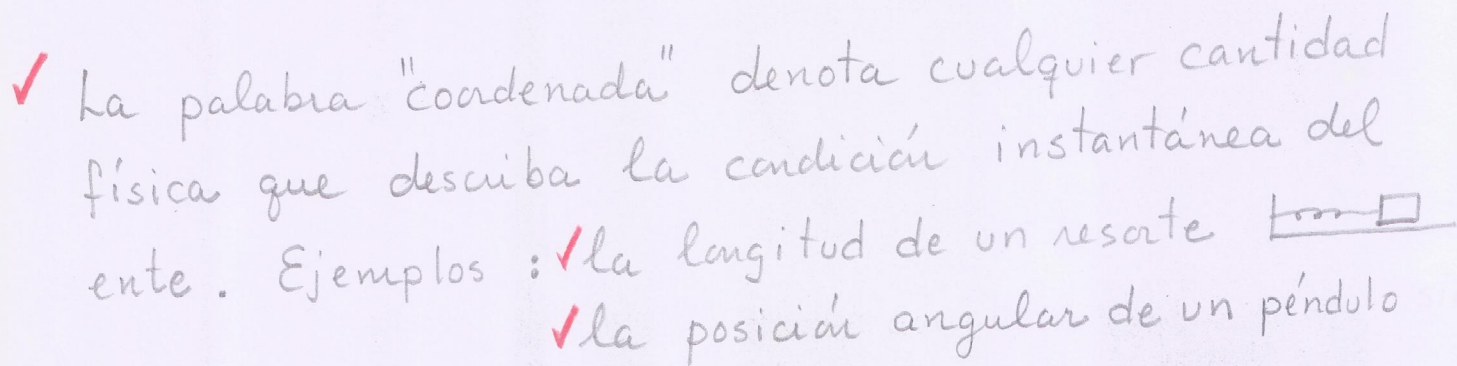 ✓ La palabra "coordenada" denota cualquier cantidad
física que describa la condición instantánea del
ente. Ejemplos : ✓ la longitud de un resorte
✓ la posición angular de un péndulo